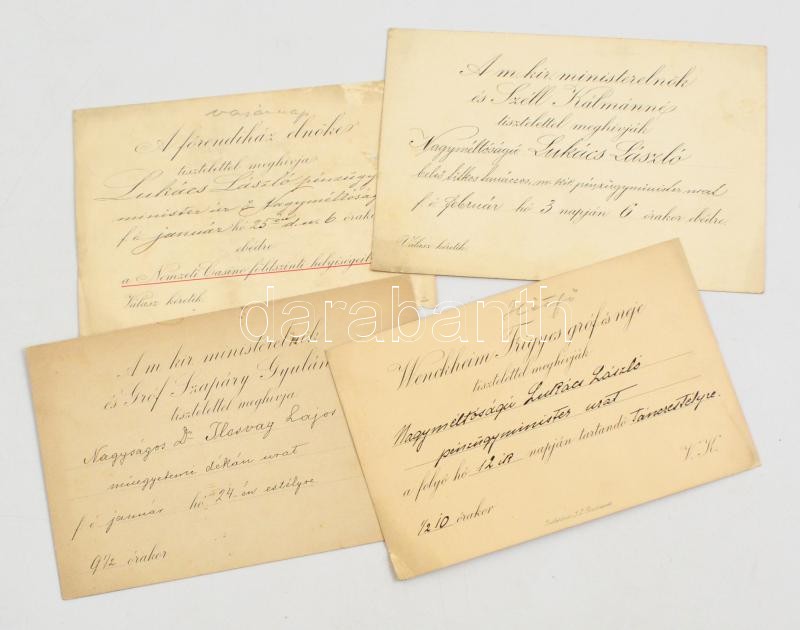 vasárnap
A főrendiház elnöke
tisztelettel meghívja
Lukács László pénzügy
minister úr ő Nagyméltóság
f é január hó 25 én d. u. 6 órak
ebédre
a Nemzeti Casino földszinti helyiségeib
Válasz kéretik.
A m. kir. ministerelnök
és Széll Kálmánné
tisztelettel meghívják
Nagyméltóságú Lukács László
belső titkos tanácsos, m. kir. pénzügyminister urat
f é február hó 3 napján 6 órakor ebédre.
Válasz kéretik.
A m. kir. ministerelnök
és Gróf Szapáry Gyulán
tisztelettel meghívja
Nagyságos Dr Ilosvay Lajos
műegyetemi dékán urat
f é január hó 24 én estélyre
9 1/2 órakor
Wenckheim Frigyes gróf és neje
tisztelettel meghívják
Nagyméltóságú Lukács László
pénzügyminister urat
a folyó hó 12 ik napján tartandó táncestélyre.
1/2 10 órakor
V. K.
darabanth